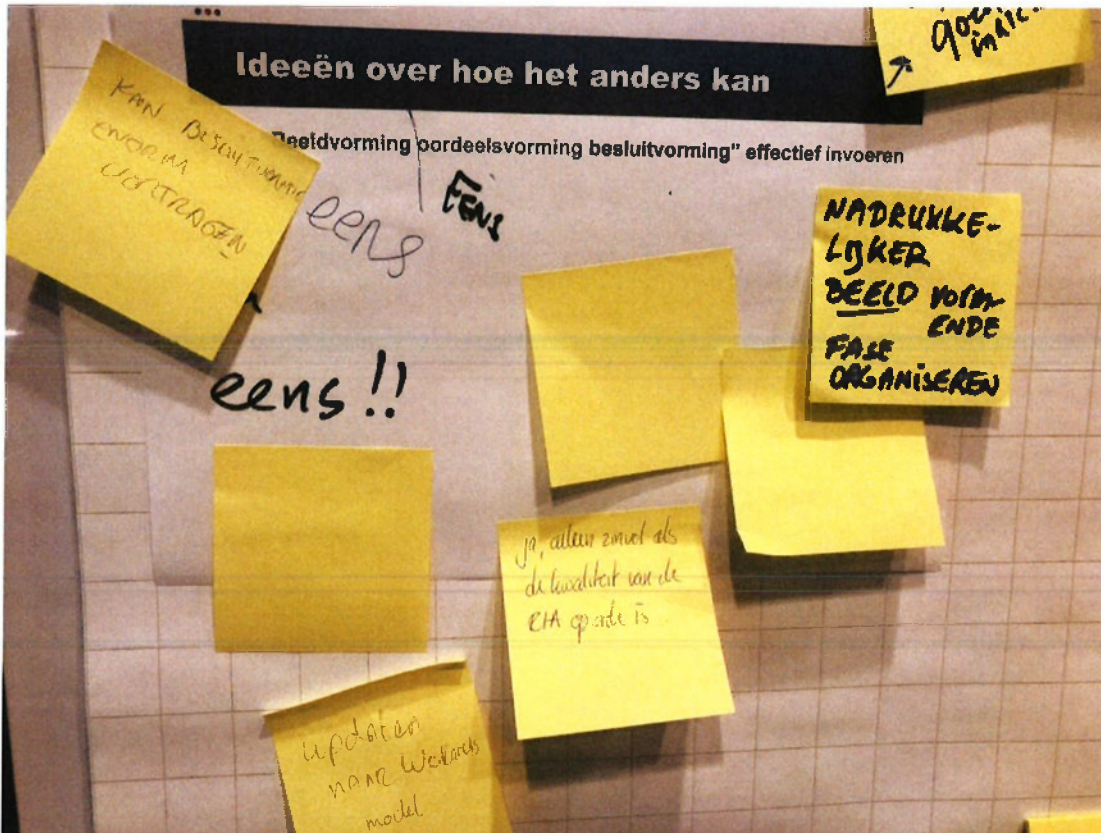 Ideeën over hoe het anders kan
Beeldvorming oordeelsvorming besluitvorming" effectief invoeren
KAN BESLUITVORMING
ENORM
VERTRAGEN
eens
EENS
eens !!
NADRUKKE-
LIJKER
BEELD VORM-
ENDE
FASE
ORGANISEREN
ja, alleen zinvol als
de kwaliteit van de
RIA op orde is
updaten
NAAR
model